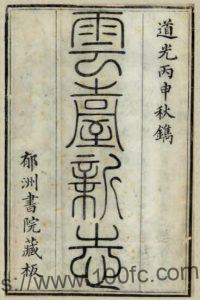 道光丙申秋鐫
雲臺新志
郁洲書院藏板
s://www.100fc.com